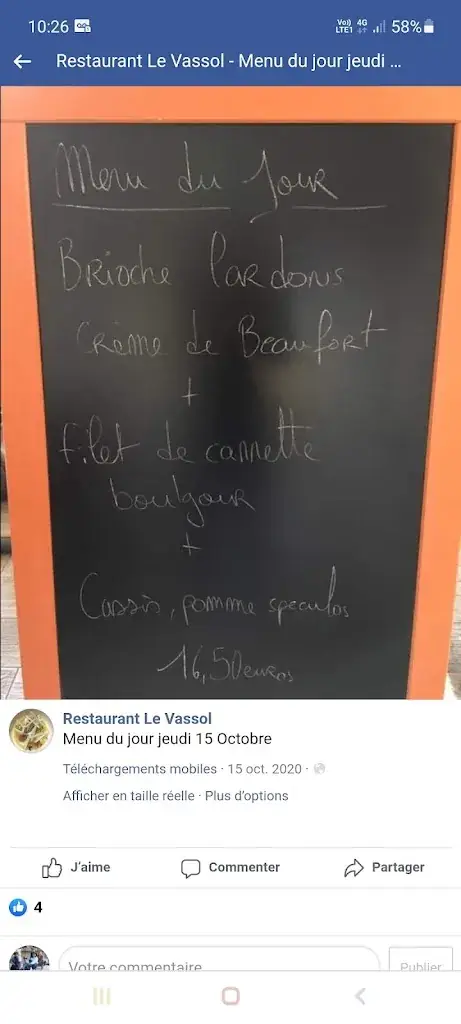 10:26
Vo)) 4G
LTE1 58%
Restaurant Le Vassol - Menu du jour jeudi ...
Menu du Jour
Brioche lardons
Crème de Beaufort
+
filet de cannette
boulgour
+
Cassis, pomme speculos
16,50 euros
Restaurant Le Vassol
Menu du jour jeudi 15 Octobre
Téléchargements mobiles · 15 oct. 2020 ·
Afficher en taille réelle · Plus d'options
J'aime
Commenter
Partager
4
Votre commentaire
Publier